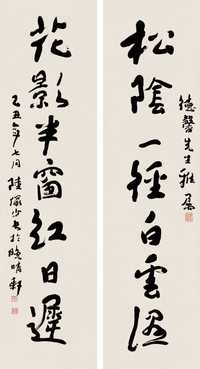 德馨先生雅屬
松陰一徑白雲濕
花影半窗紅日遲
乙丑年七月陸儼少書於晚晴軒